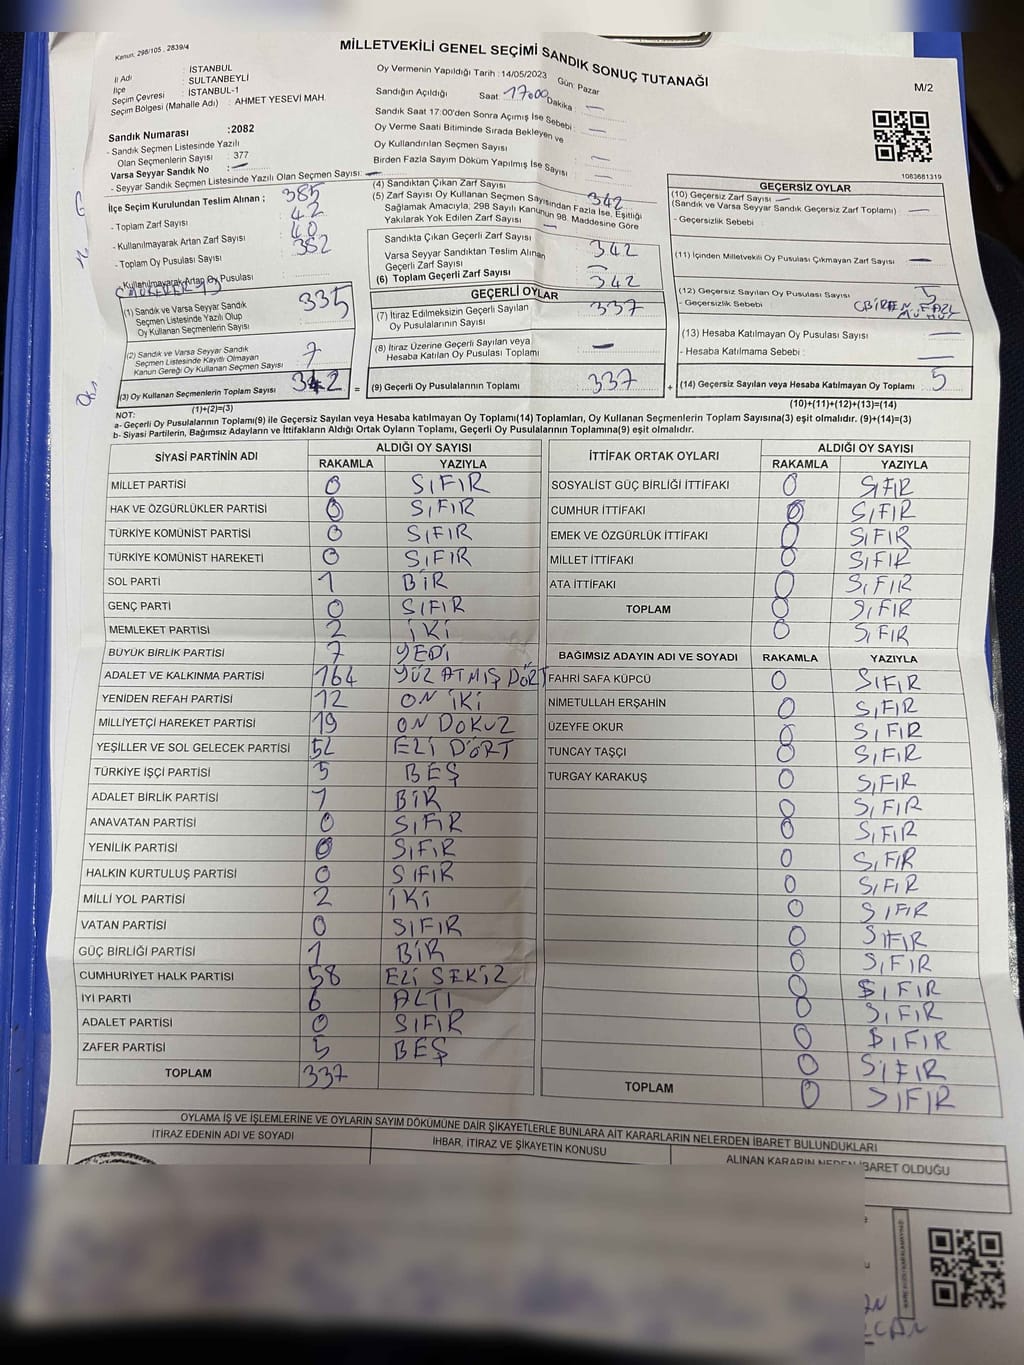 Kanun: 298/105 , 2839/4
MİLLETVEKİLİ GENEL SEÇİMİ SANDIK SONUÇ TUTANAĞI
M/2
İl Adı : İSTANBUL
İlçe : SULTANBEYLİ
Seçim Çevresi : İSTANBUL-1
Seçim Bölgesi (Mahalle Adı) : AHMET YESEVİ MAH.
Sandık Numarası :2082
- Sandık Seçmen Listesinde Yazılı
Olan Seçmenlerin Sayısı : 377
Varsa Seyyar Sandık No : —
- Seyyar Sandık Seçmen Listesinde Yazılı Olan Seçmen Sayısı: —
Oy Vermenin Yapıldığı Tarih : 14/05/2023 Gün: Pazar
Sandığın Açıldığı Saat: 17:00 Dakika: —
Sandık Saat 17:00'den Sonra Açımış İse Sebebi : —
Oy Verme Saati Bitiminde Sırada Bekleyen ve
Oy Kullandırılan Seçmen Sayısı —
Birden Fazla Sayım Döküm Yapılmış İse Sayısı : —
1083681319
İlçe Seçim Kurulundan Teslim Alınan ;
- Toplam Zarf Sayısı 385
- Kullanılmayarak Artan Zarf Sayısı 42
- Toplam Oy Pusulası Sayısı
- Kullanılmayarak Artan Oy Pusulası
(1) Sandık ve Varsa Seyyar Sandık
Seçmen Listesinde Yazılı Olup
Oy Kullanan Seçmenlerin Sayısı 335
(2) Sandık ve Varsa Seyyar Sandık
Seçmen Listesinde Kayıtlı Olmayan
Kanun Gereği Oy Kullanan Seçmen Sayısı : 7
(3) Oy Kullanan Seçmenlerin Toplam Sayısı 342
(1)+(2)=(3)
(4) Sandıktan Çıkan Zarf Sayısı 342
(5) Zarf Sayısı Oy Kullanan Seçmen Sayısından Fazla İse, Eşitliği
Sağlamak Amacıyla, 298 Sayılı Kanunun 98. Maddesine Göre
Yakılarak Yok Edilen Zarf Sayısı —
Sandıkta Çıkan Geçerli Zarf Sayısı 342
Varsa Seyyar Sandıktan Teslim Alınan
Geçerli Zarf Sayısı —
(6) Toplam Geçerli Zarf Sayısı 342
GEÇERLİ OYLAR
(7) İtiraz Edilmeksizin Geçerli Sayılan
Oy Pusulalarının Sayısı 337
(8) İtiraz Üzerine Geçerli Sayılan veya
Hesaba Katılan Oy Pusulası Toplamı —
= (9) Geçerli Oy Pusulalarının Toplamı 337 +
GEÇERSİZ OYLAR
(10) Geçersiz Zarf Sayısı —
(Sandık ve Varsa Seyyar Sandık Geçersiz Zarf Toplamı) —
- Geçersizlik Sebebi :
(11) İçinden Milletvekili Oy Pusulası Çıkmayan Zarf Sayısı —
(12) Geçersiz Sayılan Oy Pusulası Sayısı 5
- Geçersizlik Sebebi :
(13) Hesaba Katılmayan Oy Pusulası Sayısı —
- Hesaba Katılmama Sebebi : —
(14) Geçersiz Sayılan veya Hesaba Katılmayan Oy Toplamı 5
(10)+(11)+(12)+(13)=(14)
NOT:
a- Geçerli Oy Pusulalarının Toplamı(9) ile Geçersiz Sayılan veya Hesaba katılmayan Oy Toplamı(14) Toplamları, Oy Kullanan Seçmenlerin Toplam Sayısına(3) eşit olmalıdır. (9)+(14)=(3)
b- Siyasi Partilerin, Bağımsız Adayların ve İttifakların Aldığı Ortak Oyların Toplamı, Geçerli Oy Pusulalarının Toplamına(9) eşit olmalıdır.
SİYASİ PARTİNİN ADI ALDIĞI OY SAYISI
RAKAMLA YAZIYLA
MİLLET PARTİSİ 0 SIFIR
HAK VE ÖZGÜRLÜKLER PARTİSİ 0 SIFIR
TÜRKİYE KOMÜNİST PARTİSİ 0 SIFIR
TÜRKİYE KOMÜNİST HAREKETİ 0 SIFIR
SOL PARTİ 1 BİR
GENÇ PARTİ 0 SIFIR
MEMLEKET PARTİSİ 2 İKİ
BÜYÜK BİRLİK PARTİSİ 7 YEDİ
ADALET VE KALKINMA PARTİSİ 164 YÜZ ATMIŞ DÖRT
YENİDEN REFAH PARTİSİ 12 ON İKİ
MİLLİYETÇİ HAREKET PARTİSİ 19 ON DOKUZ
YEŞİLLER VE SOL GELECEK PARTİSİ 54 ELİ DÖRT
TÜRKİYE İŞÇİ PARTİSİ 5 BEŞ
ADALET BİRLİK PARTİSİ 1 BİR
ANAVATAN PARTİSİ 0 SIFIR
YENİLİK PARTİSİ 0 SIFIR
HALKIN KURTULUŞ PARTİSİ 0 SIFIR
MİLLİ YOL PARTİSİ 2 İKİ
VATAN PARTİSİ 0 SIFIR
GÜÇ BİRLİĞİ PARTİSİ 1 BİR
CUMHURİYET HALK PARTİSİ 58 ELİ SEKİZ
İYİ PARTİ 6 ALTI
ADALET PARTİSİ 0 SIFIR
ZAFER PARTİSİ 5 BEŞ
TOPLAM 337
İTTİFAK ORTAK OYLARI ALDIĞI OY SAYISI
RAKAMLA YAZIYLA
SOSYALİST GÜÇ BİRLİĞİ İTTİFAKI 0 SIFIR
CUMHUR İTTİFAKI 0 SIFIR
EMEK VE ÖZGÜRLÜK İTTİFAKI 0 SIFIR
MİLLET İTTİFAKI 0 SIFIR
ATA İTTİFAKI 0 SIFIR
TOPLAM 0 SIFIR
0 SIFIR
BAĞIMSIZ ADAYIN ADI VE SOYADI RAKAMLA YAZIYLA
FAHRİ SAFA KÜPCÜ 0 SIFIR
NİMETULLAH ERŞAHİN 0 SIFIR
ÜZEYFE OKUR 0 SIFIR
TUNCAY TAŞÇI 0 SIFIR
TURGAY KARAKUŞ 0 SIFIR
0 SIFIR
0 SIFIR
0 SIFIR
0 SIFIR
0 SIFIR
0 SIFIR
0 SIFIR
0 SIFIR
0 SIFIR
0 SIFIR
0 SIFIR
TOPLAM 0 SIFIR
OYLAMA İŞ VE İŞLEMLERİNE VE OYLARIN SAYIM DÖKÜMÜNE DAİR ŞİKAYETLERLE BUNLARA AİT KARARLARIN NELERDEN İBARET BULUNDUKLARI
İTİRAZ EDENİN ADI VE SOYADI
İHBAR, İTİRAZ VE ŞİKAYETİN KONUSU
ALINAN KARARIN NEDEN İBARET OLDUĞU